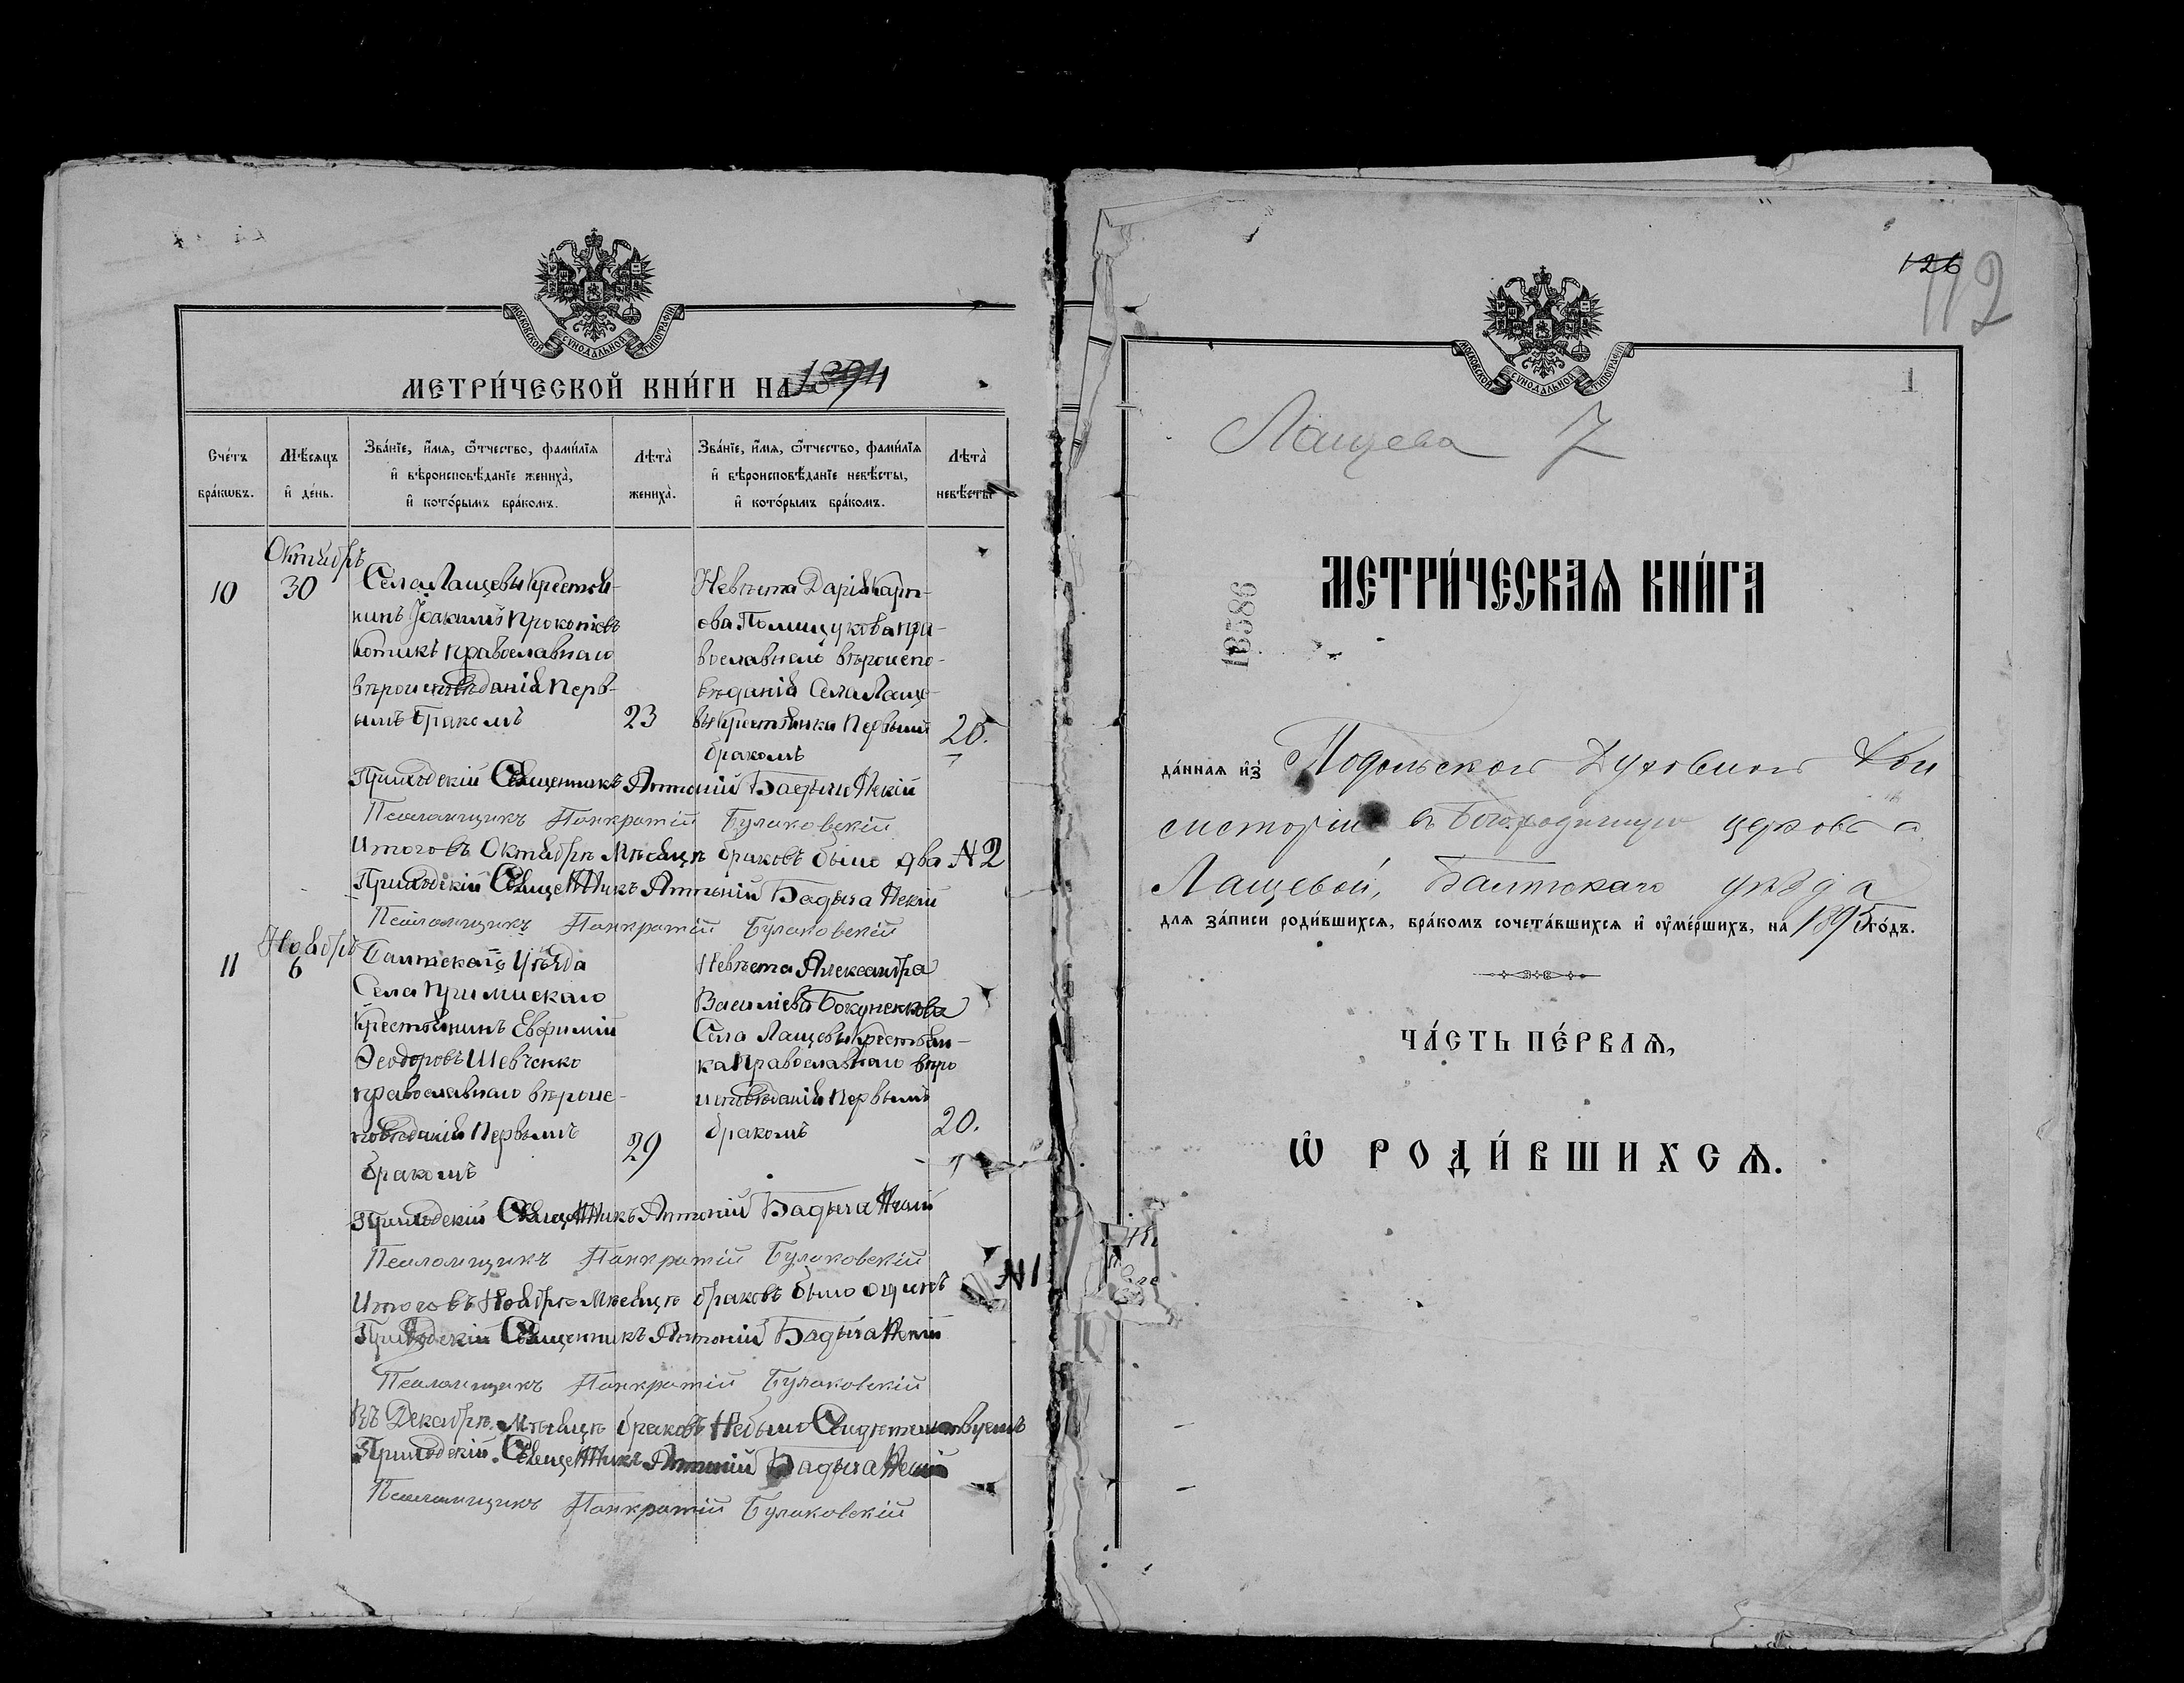 МОСКОВСКОЙ СѴНОДАЛЬНОЙ ТИПОГРАФІИ
МЕТРИ́ЧЕСКОЙ КНИ́ГИ НА 1894
Сче́тъ бра́кѡвъ.
Мѣ́сяцъ и҆ де́нь.
Зва́нїе, и҆́мѧ, ѻ҆́тчество, фами́лїѧ
и҆ вѣроисповѣ́данїе жениха̀,
и҆ кото́рымъ бра́комъ.
Лѣта̀ жениха̀.
Зва́нїе, и҆́мѧ, ѻ҆́тчество, фами́лїѧ
и҆ вѣроисповѣ́данїе невѣ́сты,
и҆ кото́рымъ бра́комъ.
Лѣта̀ невѣ́сты
Октября
10
30
Села Лащевы Крестья-
нинъ Іоакимъ Прокопіевъ
Котикъ православнаго
вѣроисповѣданія перв-
ымъ бракомъ
23
Невѣста Дарія Карп-
ова Полищукова пра-
вославнаго вѣроиспо-
вѣданія Села Лаще-
вы Крестьянка Первымъ
бракомъ
20.
Приходскій Священникъ Антоній
Псаломщикъ Панкратій Булаковскій
Итого въ Октябрѣ Мѣсяцѣ браковъ было два № 2
Приходскій Священникъ Антоній
Псаломщикъ Панкратій Булаковскій
Ноября
11
6
Балтскаго Уѣзда
Села
Крестьянинъ Евфимій
Ѳеодоровъ Шевченко
православнаго вѣроис-
повѣданія Первымъ
бракомъ
29
Невѣста Александра
Василіева
Села Лащевы Крестьян-
ка Православнаго вѣро
исповѣданія Первымъ
бракомъ
20.
Приходскій Священникъ Антоній
Псаломщикъ Панкратій Булаковскій
Итого въ Ноябрѣ Мѣсяцѣ браковъ было одинъ № 1
Приходскій Священникъ Антоній
Псаломщикъ Панкратій Булаковскій
Въ Декабрѣ Мѣсяцѣ браковъ Небыло Свидѣтельствуемъ
Приходскій Священникъ Антоній
Псаломщикъ Панкратій Булаковскій
126
112
МОСКОВСКОЙ СѴНОДАЛЬНОЙ ТИПОГРАФІИ
1
Лащева 7
МЕТРИ́ЧЕСКАѦ КНИ́ГА
13586
да́ннаѧ и҆з̾ Подольской Духовной Кон
систоріи въ Богородичную церковь с.
Лащевой, Балтскаго уѣзда
длѧ за́писи роди́вшихсѧ, бра́комъ сочета́вшихсѧ и҆ ᲂу҆ме́ршихъ, на 1895 го́дъ.
ЧА́СТЬ ПЕ́РВАѦ,
Ѽ РОДИ́ВШИХСѦ.